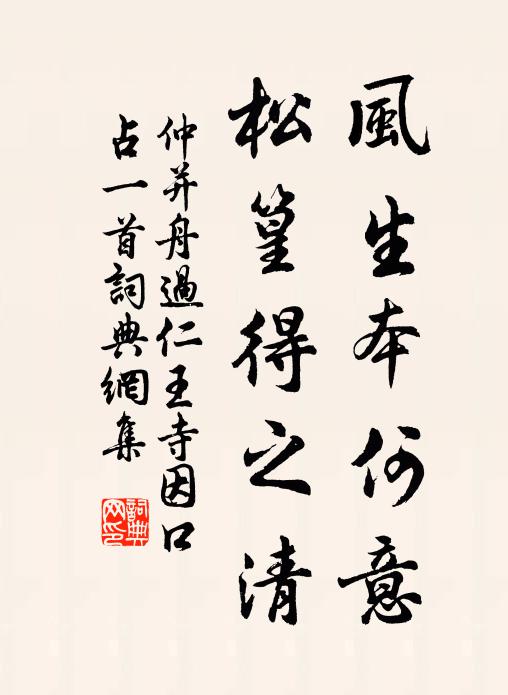 風生本何意
松篁得之清
仲并舟過仁王寺因口
占一首詞典網集
詞典网印